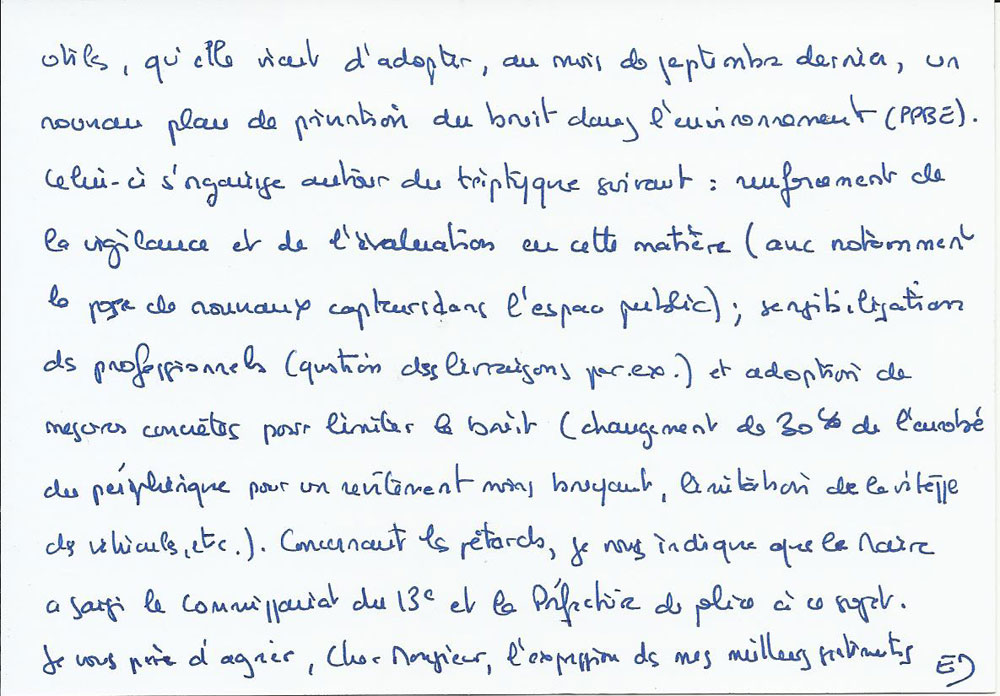 utiles, qu'elle vient d'adopter, au mois de septembre dernier, un
nouveau plan de prévention du bruit dans l'environnement (PPBE).
Celui-ci s'organise autour du triptyque suivant : renforcement de
la vigilance et de l'évaluation en cette matière (avec notamment
la pose de nouveaux capteurs dans l'espace public) ; sensibilisation
des professionnels (question des livraisons par ex.) et adoption de
mesures concrètes pour limiter le bruit (changement de 30% de l'enrobé
du périphérique pour un revêtement moins bruyant, limitation de la vitesse
des véhicules, etc.). Concernant les pétards, je vous indique que la Maire
a saisi le Commissariat du 13e et la Préfecture de police à ce sujet.
Je vous prie d'agréer, Cher Monsieur, l'expression de mes meilleurs sentiments